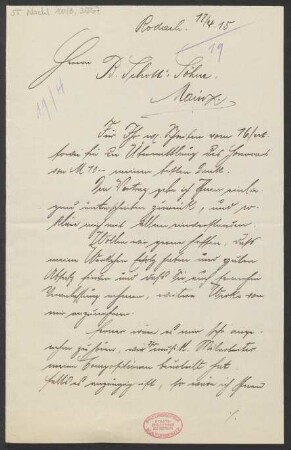 Rodach. 18/4 15
19
Herrn
B. Schott's Söhne
Mainz.
19/4
Für Ihr wg. Schreiben vom 16/ct.
sowie für die Übermittlung des Honorars
von M. 10.– meinen besten Dank.
Den Vertrag gebe ich Ihnen
unterschrieben zurück, und er-
kläre mich mit Allem einverstanden.
Wollen wir gerne hoffen, daß
meine Werkchen Erfolg haben und guten
Absatz finden und daß Sie auch
Veranlassung nehmen, weitere Werke von
mir anzunehmen.
Ferner wäre es mir sehr ange-
nehm zu hören, Mitarbeiter
meine Compositionen beurteilt hat
falls es angängig ist, so wäre ich Ihnen
./.